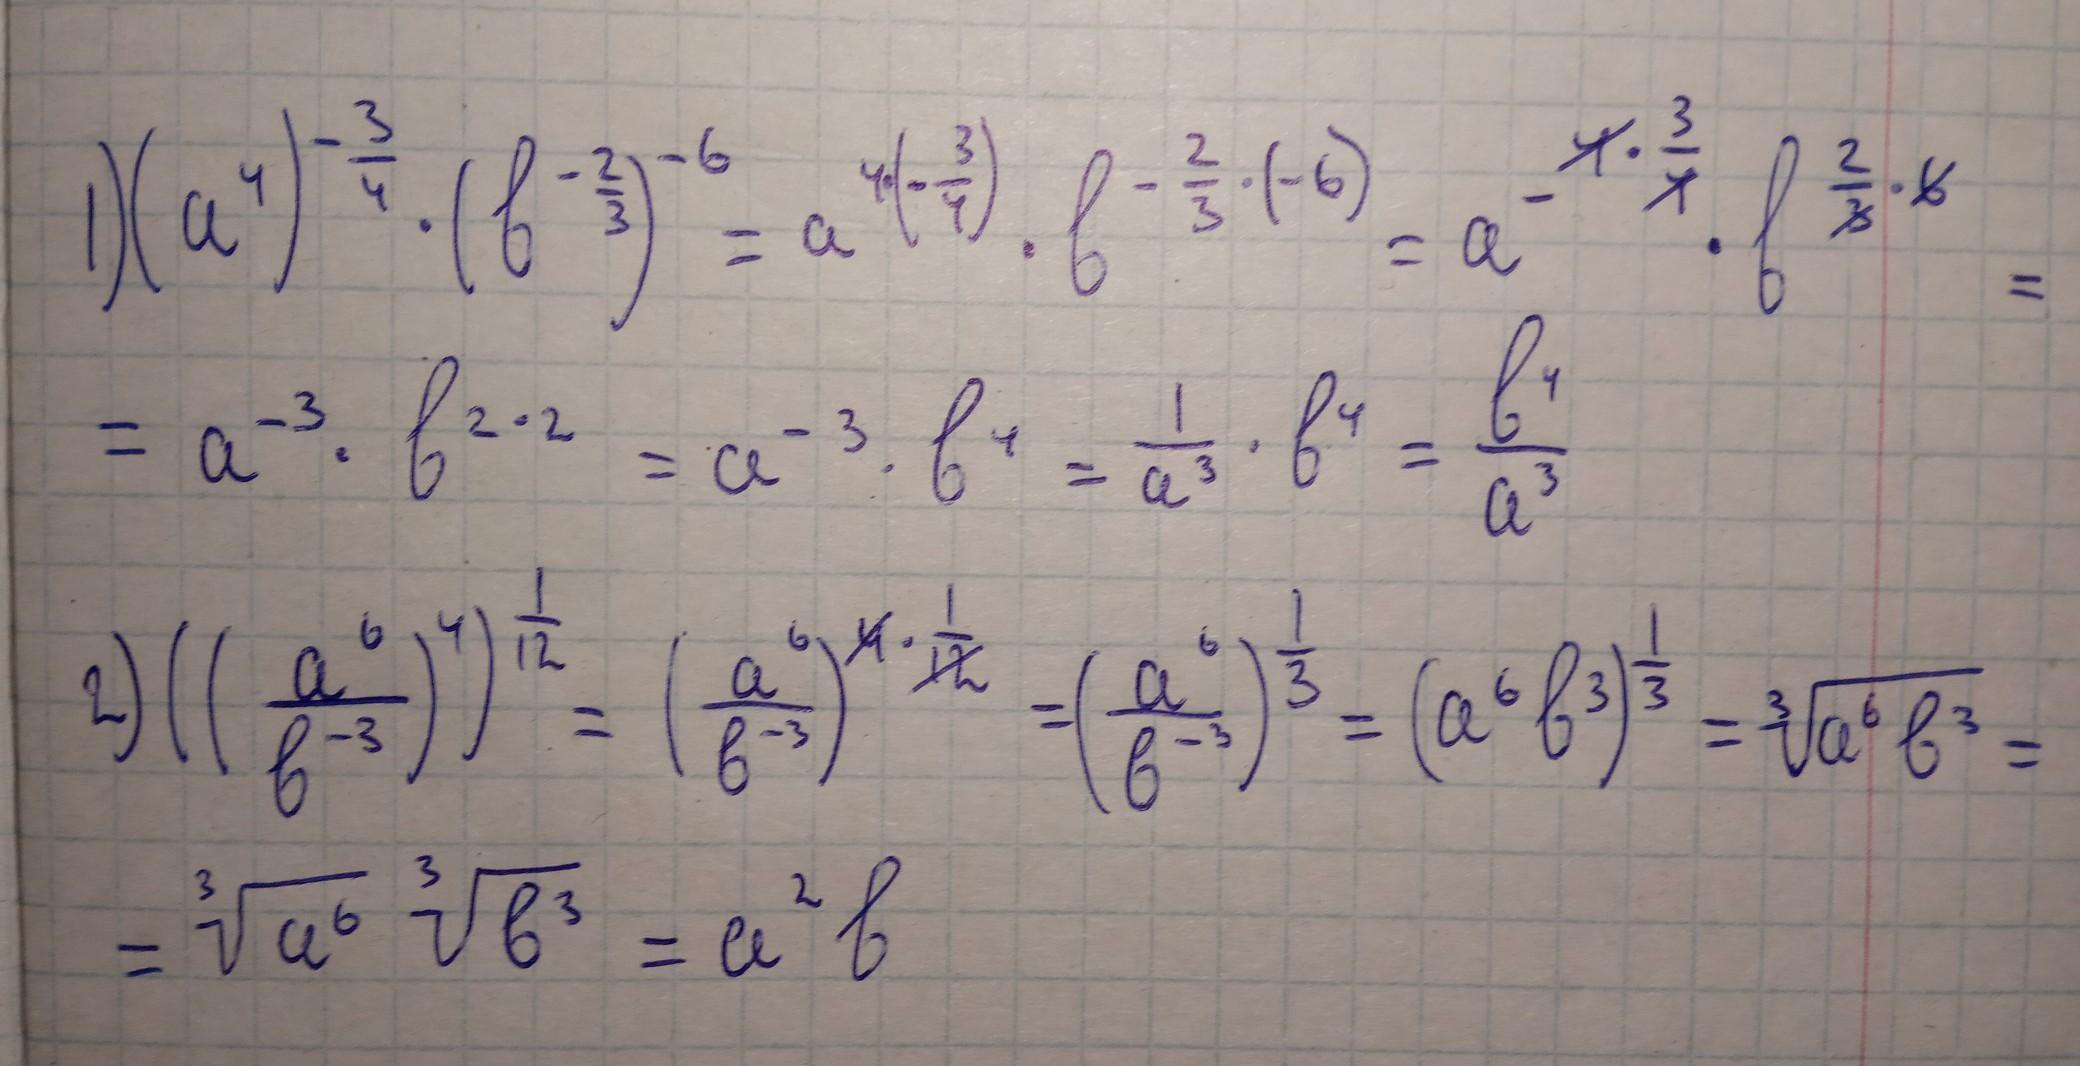 1) (a^4)^{-3/4} · (b^{-2/3})^{-6} = a^{4·(-3/4)} · b^{-2/3·(-6)} = a^{-4·3/4} · b^{2/3·6} =
= a^{-3} · b^{2·2} = a^{-3} · b^4 = 1/a^3 · b^4 = b^4/a^3
2) ((a^6/b^{-3})^4)^{1/12} = (a^6/b^{-3})^{4·1/12} = (a^6/b^{-3})^{1/3} = (a^6 b^3)^{1/3} = ∛(a^6 b^3) =
= ∛(a^6) ∛(b^3) = a^2 b